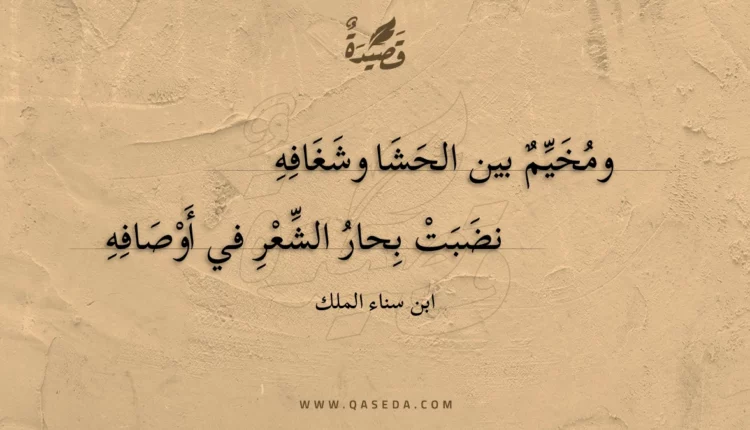 قَصِيدَةٌ
ومُخَيِّمٌ بين الحَشَا وشَغَافِهِ
نضَبَتْ بِحارُ الشِّعْرِ في أَوْصَافِهِ
ابن سناء الملك
WWW.QASEDA.COM